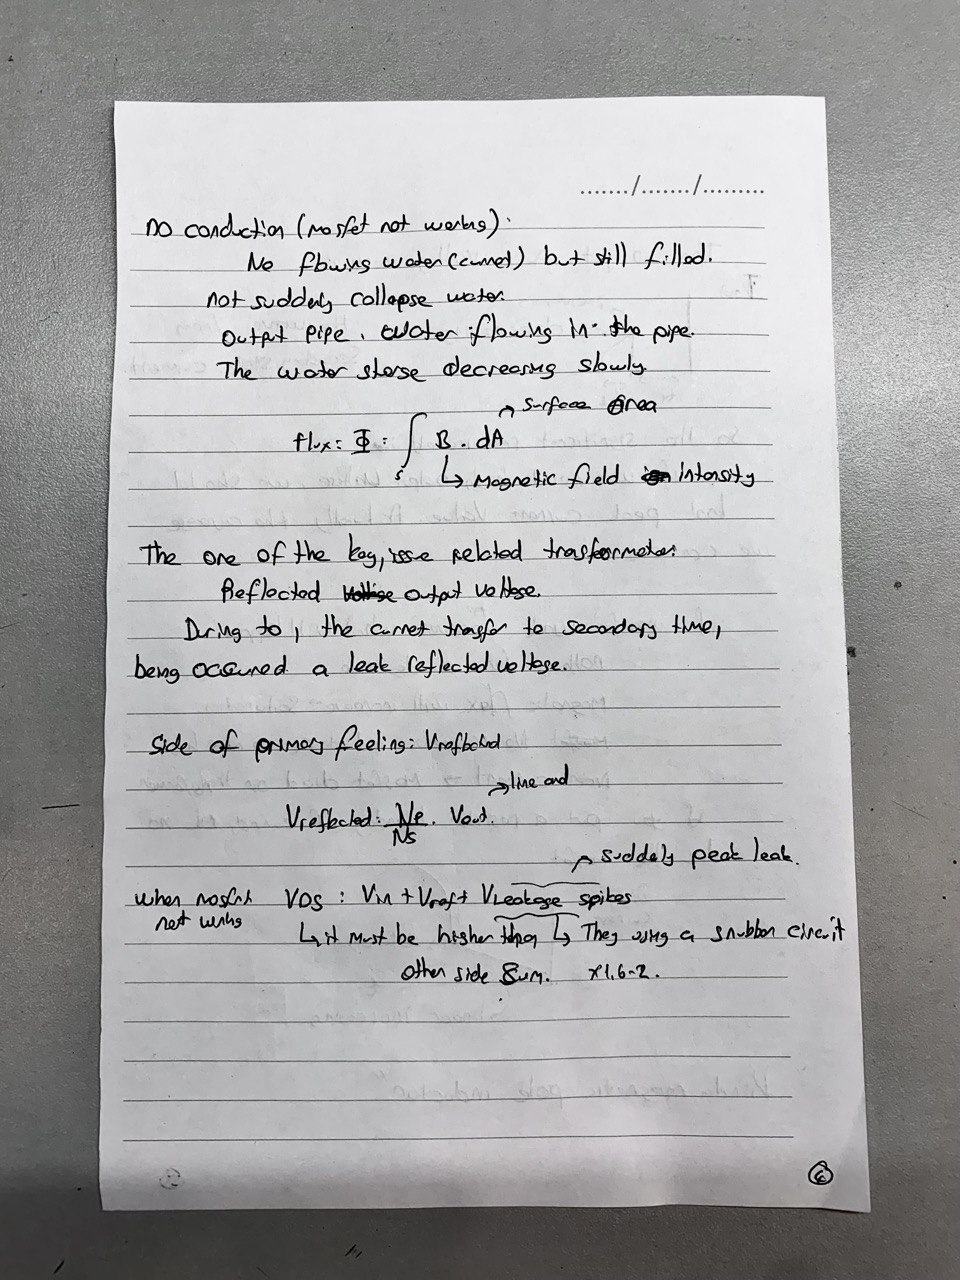 ......./......./.........
no conduction (mosfet not working).
No flowing water (current) but still filled.
not suddenly collapse water.
Output pipe, water flowing in the pipe.
The water storse decreasing slowly.
surface Area
flux: Φ: ∫s B . dA
Magnetic field intensity
The one of the key, issue related transformater:
Reflected output voltage.
During to, the current transfer to secondary time,
being occured a leak reflected voltage.
Side of primary feeling: Vreflected
line and
Vreflected: Np/Ns . Vout.
suddenly peak leak.
when mosfet not working VDS : Vin + Vref + Vleakage spikes
it must be higher than They using a snubber circuit
other side Sum. x1.6-2.
6